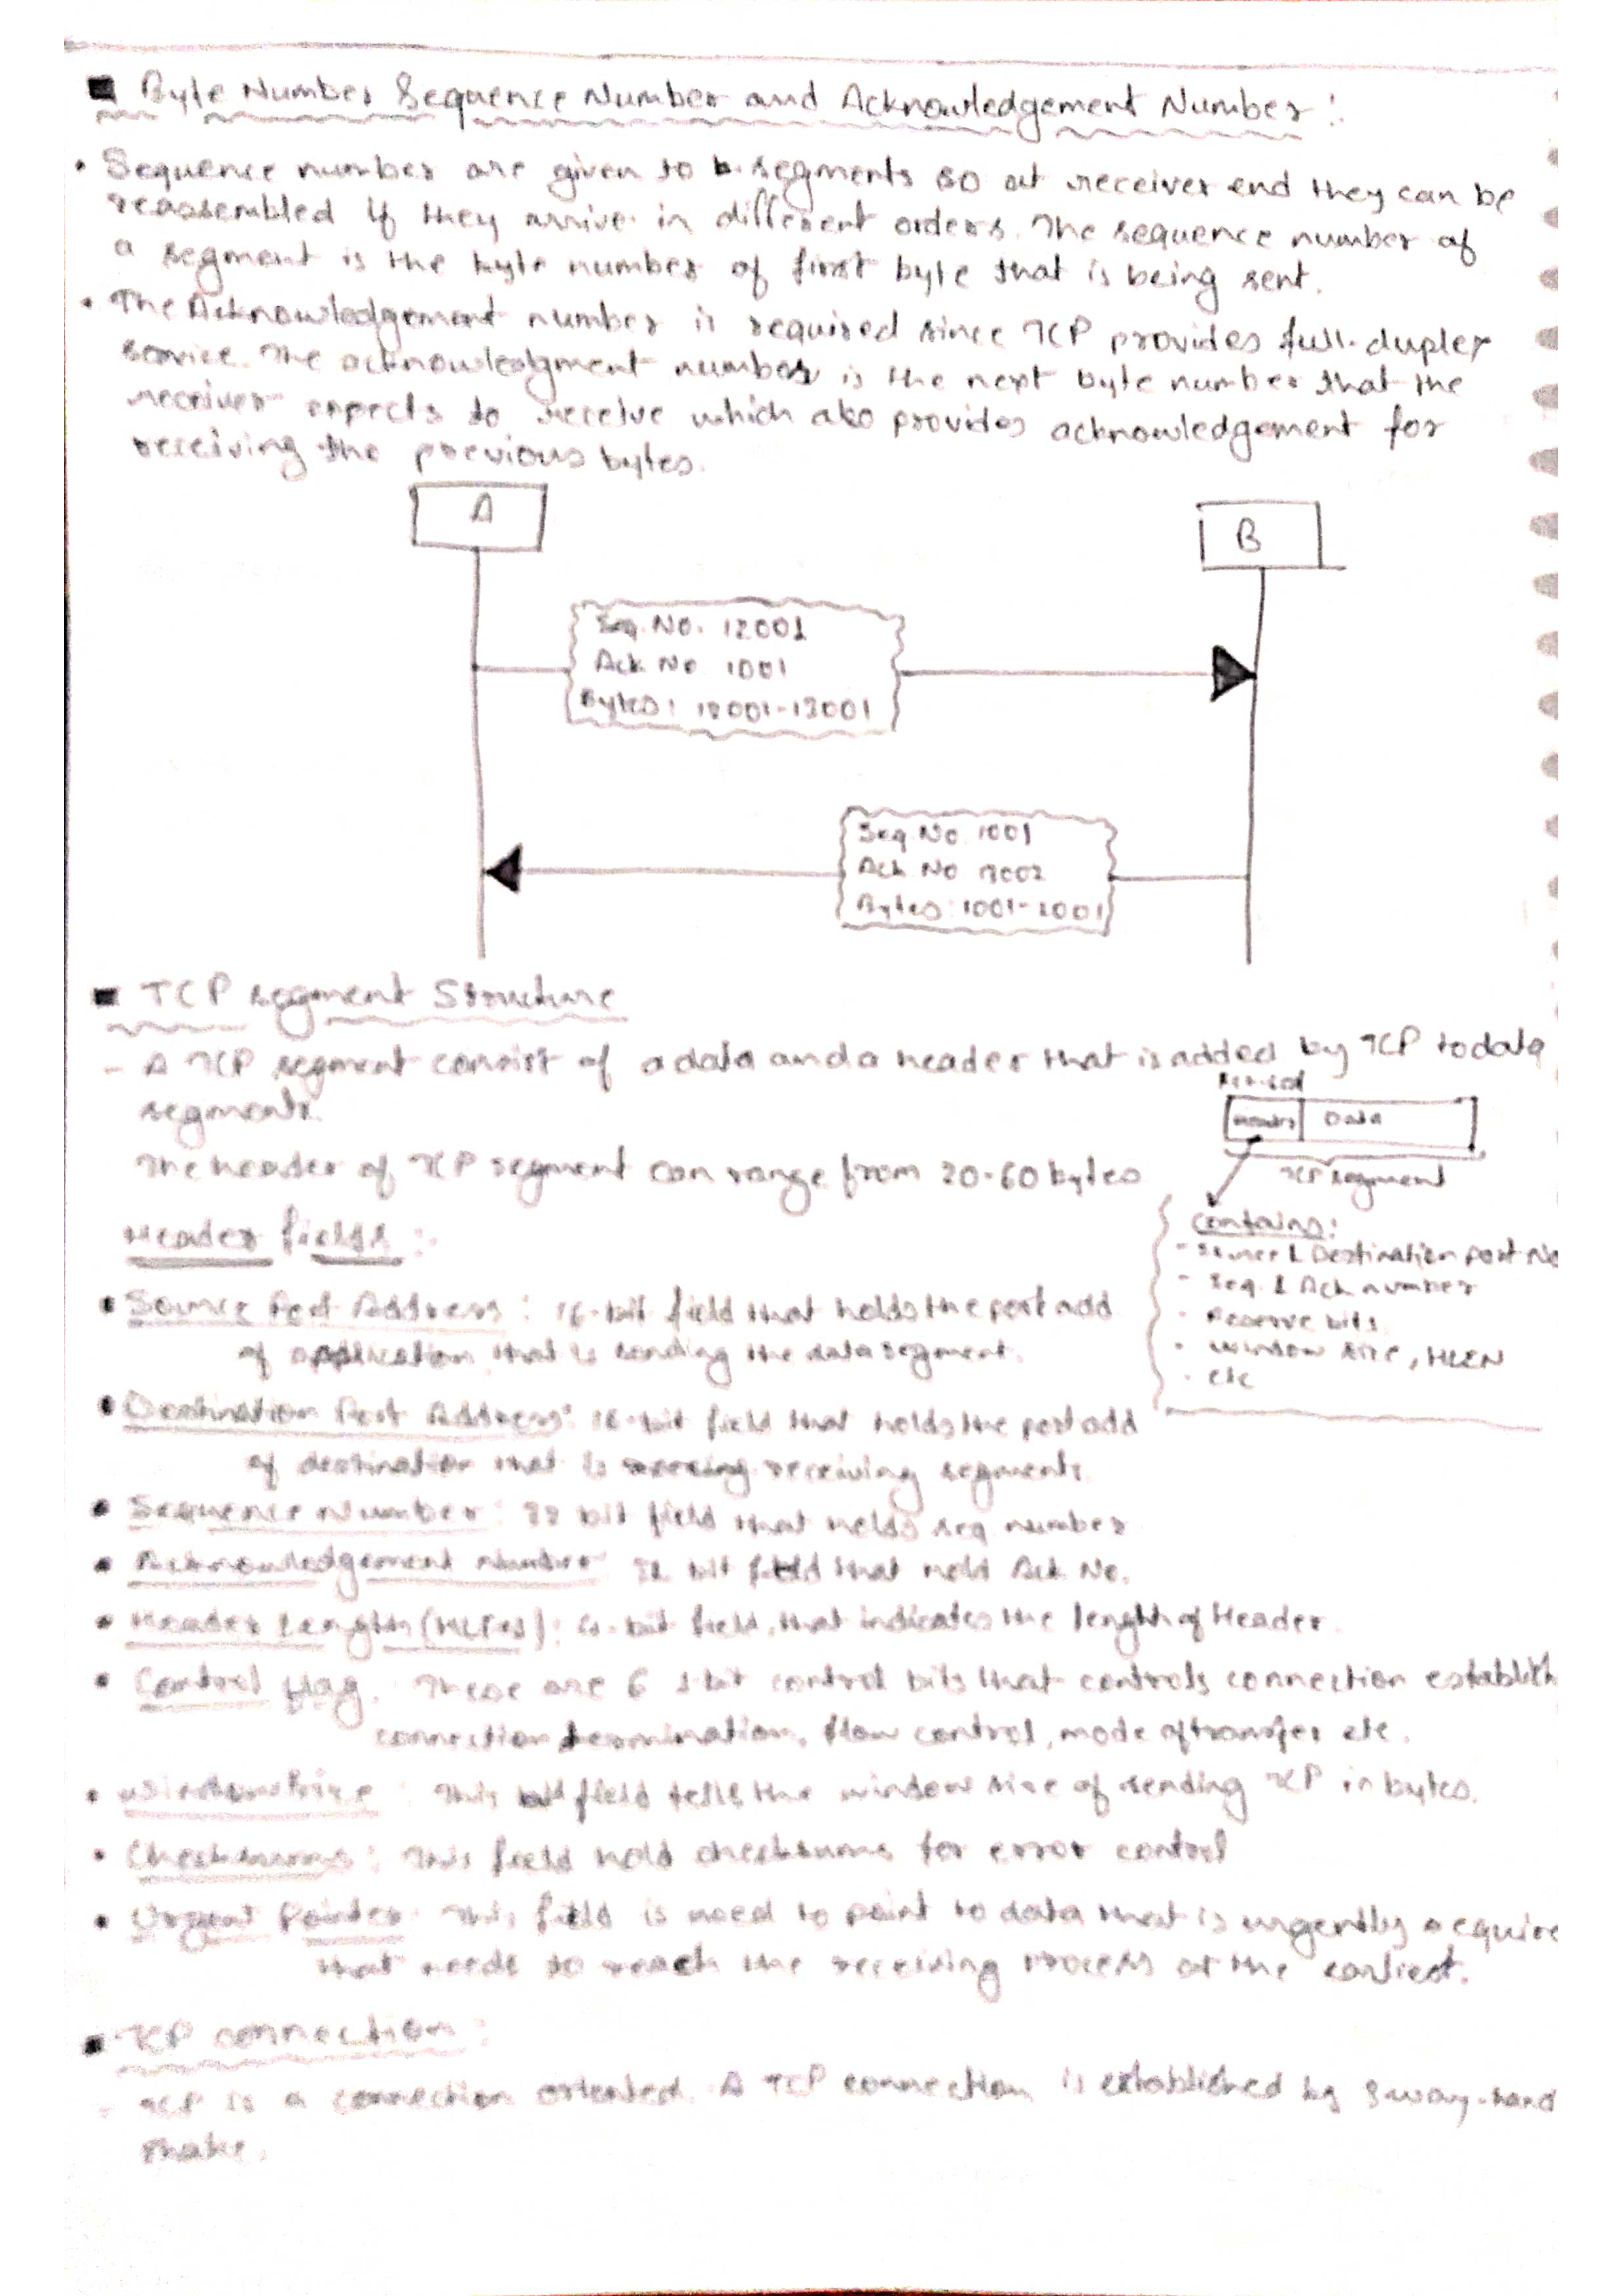 Byte Number Sequence Number and Acknowledgement Number:
• Sequence number are given to segments so at receiver end they can be
reassembled if they arrive in different orders. The sequence number of
a segment is the byte number of first byte that is being sent.
• The Acknowledgement number is required since TCP provides full-duplex
service. The acknowledgment number is the next byte number that the
receiver expects to receive which also provides acknowledgement for
receiving the previous bytes.
A
B
Seq. No. 12001
Ack No 1001
Bytes: 12001-13001
Seq No. 1001
Ack No 13002
Bytes: 1001-2001
TCP segment Structure
- A TCP segment consist of a data and a header that is added by TCP to data
segments.
Header Data
TCP segment
The header of TCP segment can range from 20-60 bytes
Contains:
- Source & Destination port No
- Seq. & Ack number
- Reserve bits
- Window size, HLEN
- etc
Header fields:
• Source Port Address: 16-bit field that holds the port add
of application that is sending the data segment.
• Destination Port Address: 16-bit field that holds the port add
of destination that is receiving segments.
• Sequence Number: 32 bit field that holds seq number
• Acknowledgement Number: 32 bit field that hold Ack No.
• Header Length (HLEN): 4-bit field, that indicates the length of Header.
• Control flag. These are 6 1-bit control bits that controls connection establish
connection termination, flow control, mode of transfer etc.
• Window Size: This field tells the window size of sending TCP in bytes.
• Checksums: This field hold checksums for error control
• Urgent Pointer: This field is used to point to data that is urgently require
that needs to reach the receiving process at the earliest.
TCP connection:
- TCP is a connection oriented. A TCP connection is established by 3 way-hand
shake.